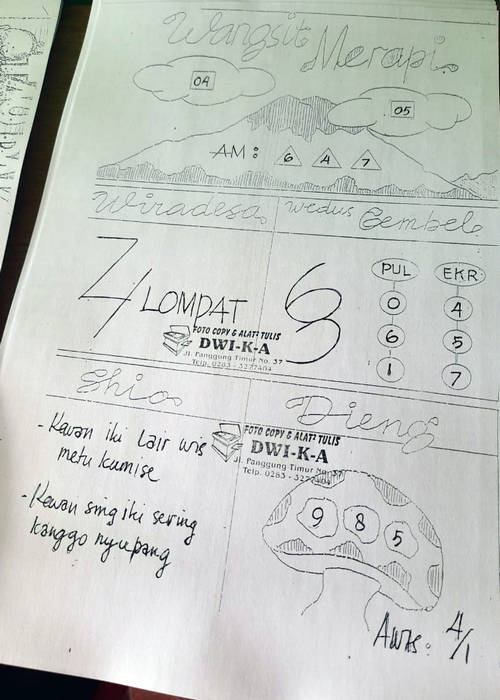 Wangsit Merapi
04
05
AM : 6 4 7
Wiradesa
Wedus Gembel
4 LOMPAT
PUL EKR
0 4
6 5
1 7
FOTO COPY & ALAT² TULIS
DWI-K-A
Jl. Panggung Timur No. 37
Telp. 0283 - 3277404
Shio
Dieng
- Kewan iki Lair wis
metu kumise
- Kewan sing iki sering
kanggo nyupang
FOTO COPY & ALAT² TULIS
DWI-K-A
Jl. Panggung Timur No. 37
Telp. 0283 -
9 8 5
Awas : 4/1